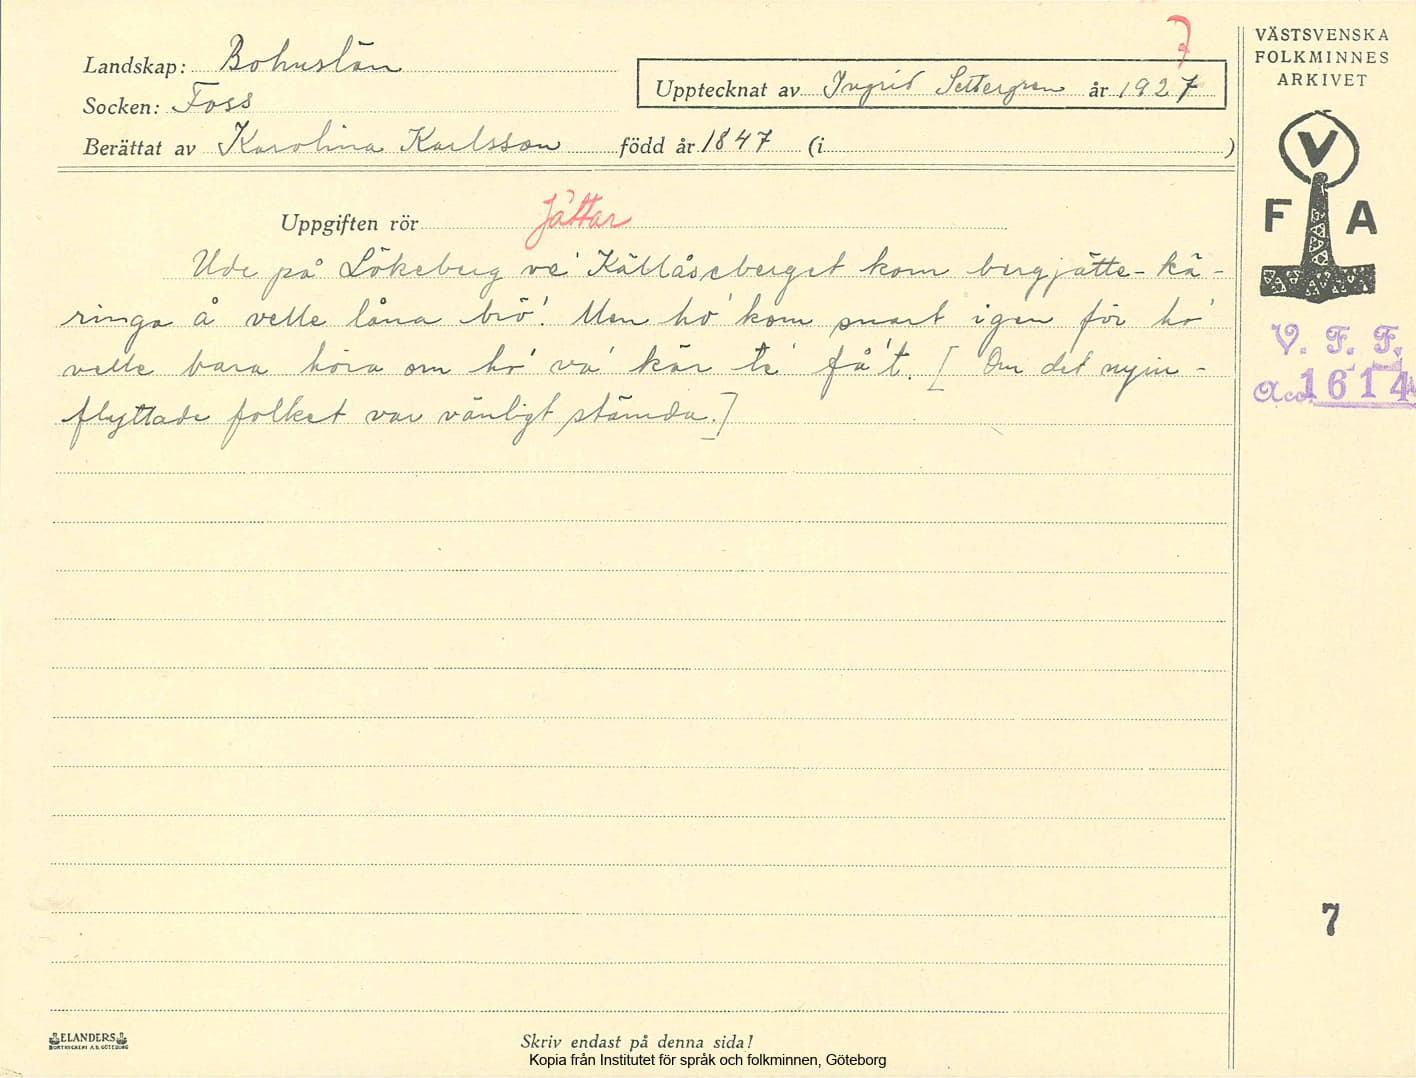 7
VÄSTSVENSKA
FOLKMINNES
ARKIVET
Landskap: Bohuslän
Upptecknat av Ingrid Settergren år 1927
Socken: Foss
Berättat av Karolina Karlsson född år 1847 (i )
V
F A
Uppgiften rör Jättar
Ude på Lökeberg ve' Källåseberget kom bergjätte-kä-
ringa å velle låna brö'. Men ho' kom snart igen för ho'
velle bara höra om ho' va' kär te' få't. [Om det nyin-
flyttade folket var vänligt stämda.]
V. F. F.
Acc. 1614
7
ELANDERS
BOKTRYCKERI A.B. GÖTEBORG
Skriv endast på denna sida!
Kopia från Institutet för språk och folkminnen, Göteborg